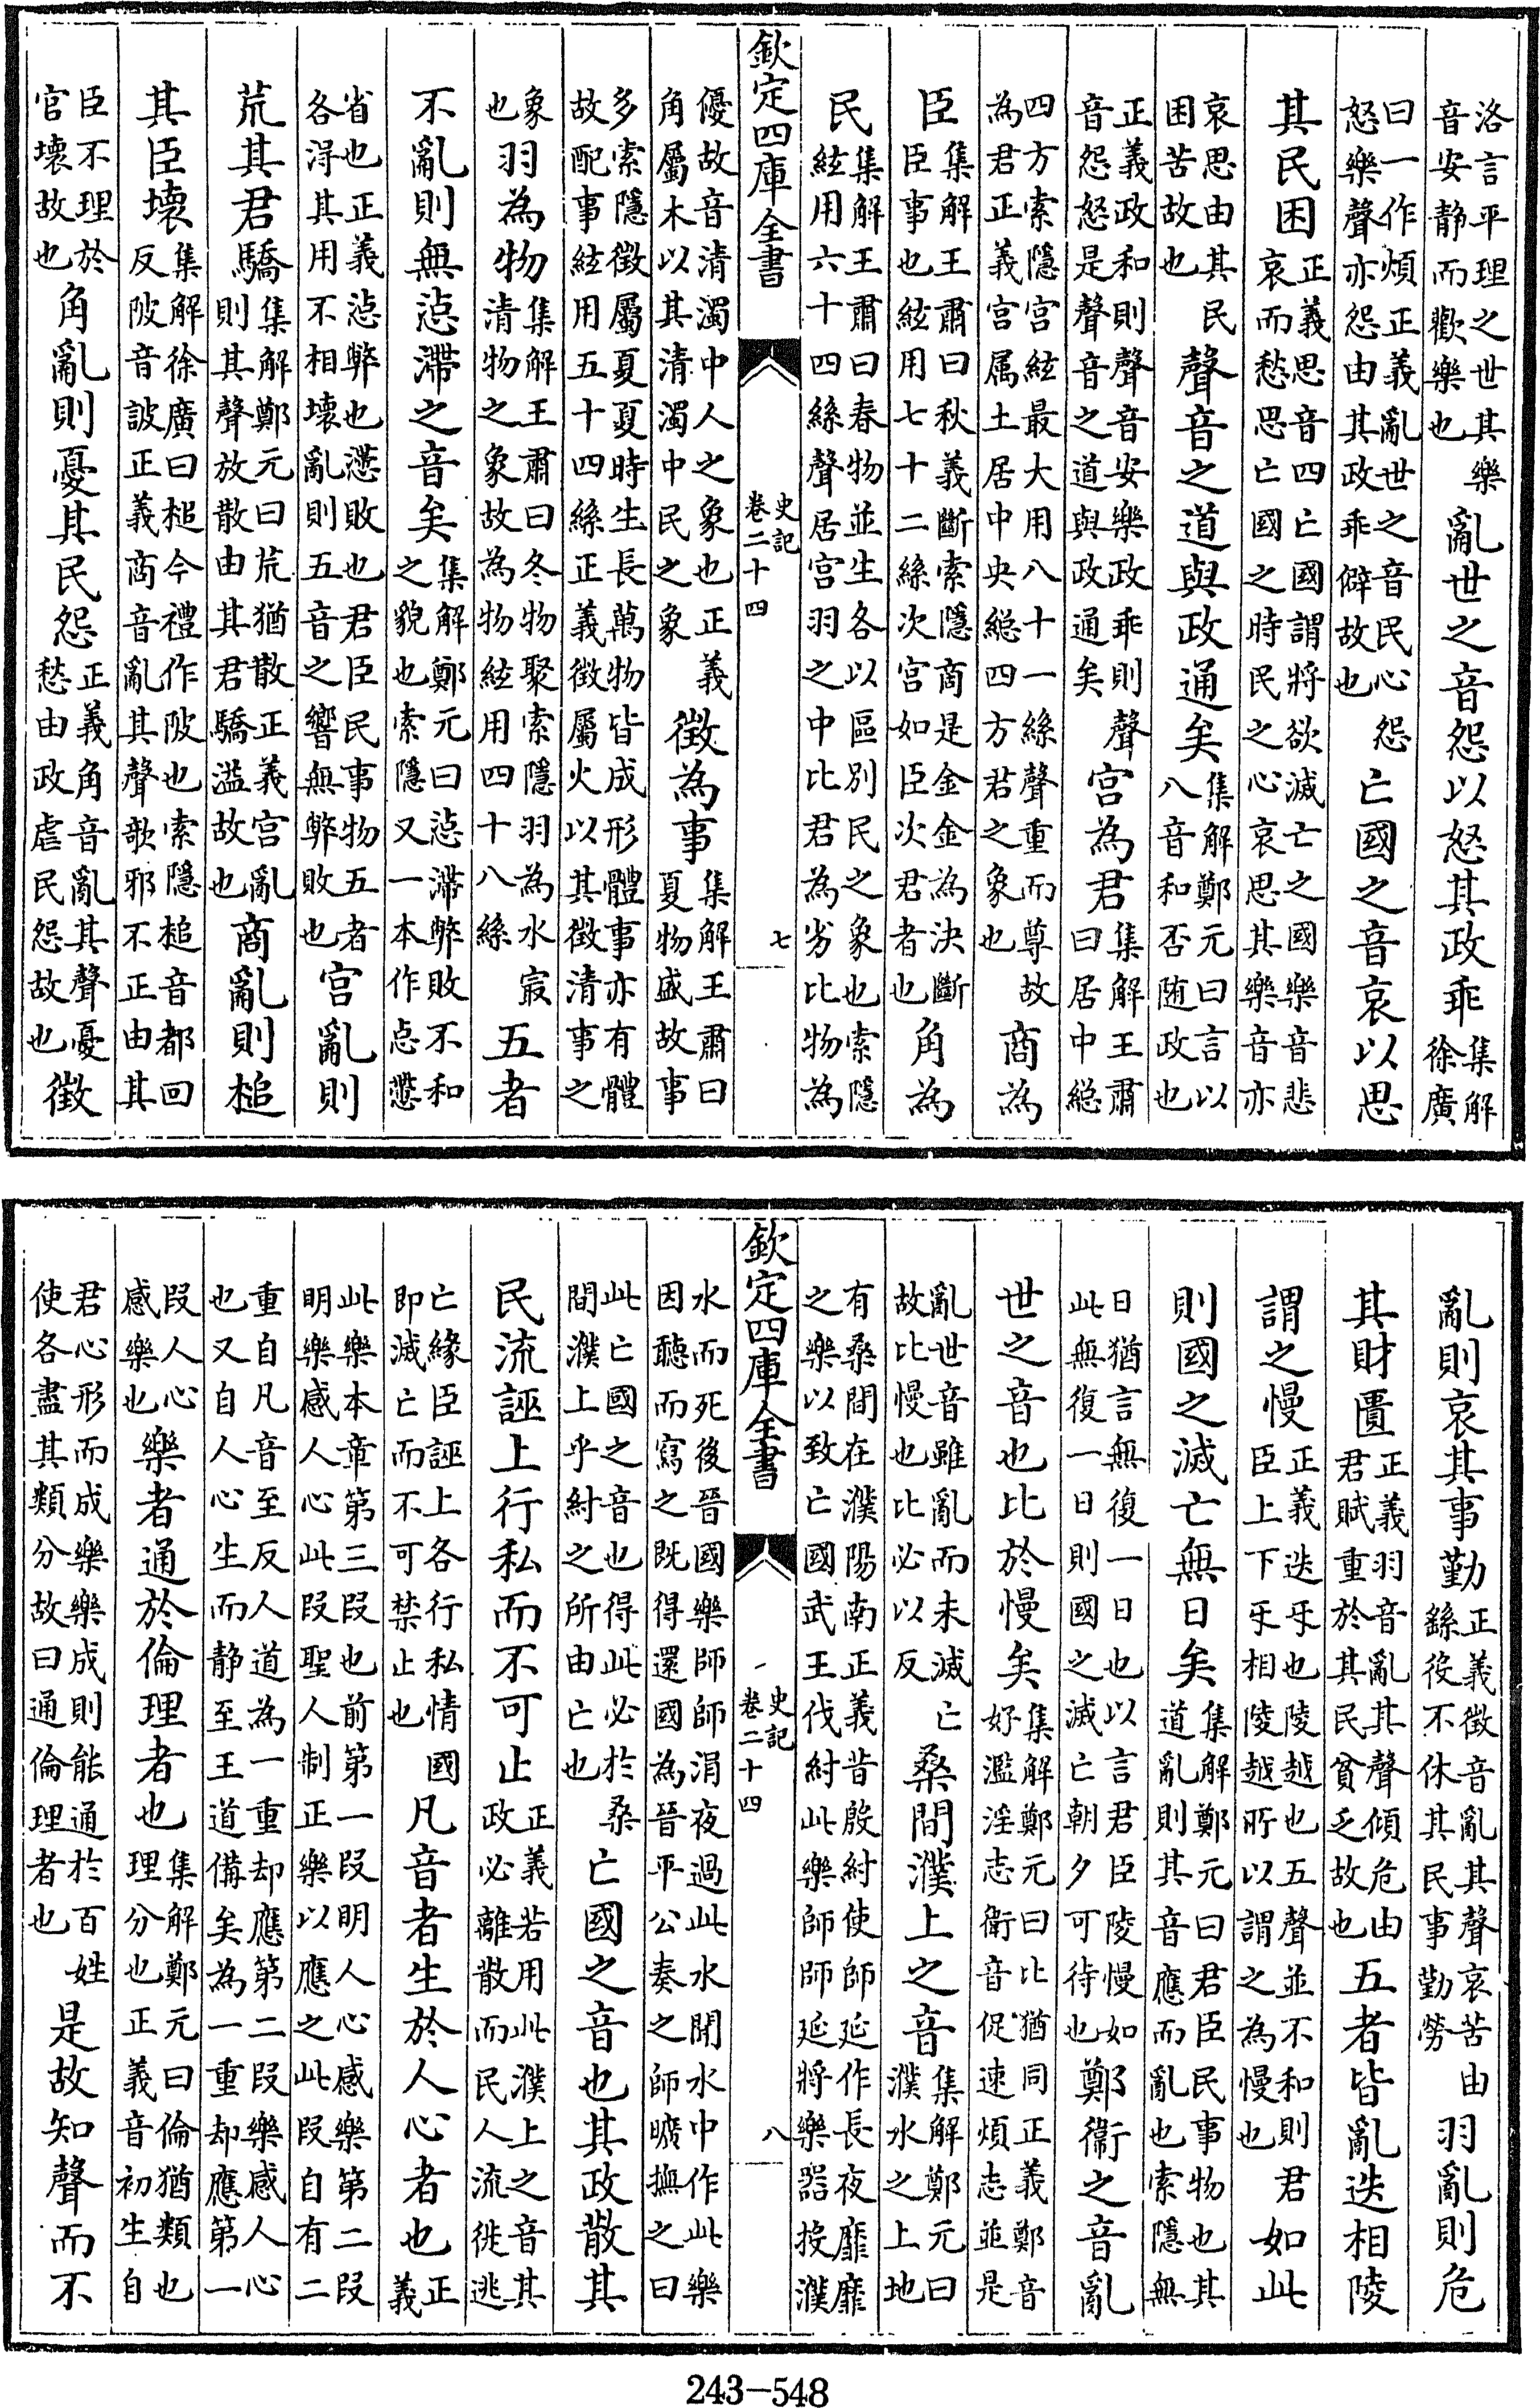 洛言平理之世其樂音安静而歡樂也亂世之音怨以怒其政乖集解徐廣
曰一作煩正義亂世之音民心怨怒樂聲亦怨由其政乖僻故也亡國之音哀以思
其民困正義思音四亡國謂將欲滅亡之國樂音悲哀而愁思亡國之時民之心哀思其樂音亦
哀思由其民困苦故也聲音之道與政通矣集解鄭元曰言以八音和否随政也
正義政和則聲音安樂政乖則聲音怨怒是聲音之道與政通矣宮為君集解王肅曰居中緫
四方索隱宮絃最大用八十一絲聲重而尊故為君正義宮属土居中央緫四方君之象也商為
臣集解王肅曰秋義斷索隱商是金金為決斷臣事也絃用七十二絲次宮如臣次君者也角為
民集解王肅曰春物並生各以區别民之象也索隱絃用六十四絲聲居宮羽之中比君為劣比物為
欽定四庫全書 史記卷二十四 七
優故音清濁中人之象也正義角屬木以其清濁中民之象徴為事集解王肅曰夏物盛故事
多索隱徴屬夏夏時生長萬物皆成形體事亦有體故配事絃用五十四絲正義徴屬火以其徴清事之
象也羽為物集解王肅曰冬物聚索隱羽為水㝡清物之象故為物絃用四十八絲五者
不亂則無惉滯之音矣集解鄭元曰惉滯弊敗不和之貌也索隱又一本作惉懘
省也正義惉弊也懘敗也君臣民事物五者各得其用不相壊亂則五音之響無弊敗也宮亂則
荒其君驕集解鄭元曰荒猶散正義宮亂則其聲放散由其君驕溢故也商亂則槌
其臣壊集解徐廣曰槌今禮作陂也索隱槌音都回反陂音詖正義商音亂其聲歌邪不正由其
臣不理於官壊故也角亂則憂其民怨正義角音亂其聲憂愁由政虐民怨故也徴
亂則哀其事勤正義徴音亂其聲哀苦由繇役不休其民事勤勞羽亂則危
其財匱正義羽音亂其聲傾危由君賦重於其民貧乏故也五者皆亂迭相陵
謂之慢正義迭㸦也陵越也五聲並不和則君臣上下㸦相陵越所以謂之為慢也如此
則國之滅亡無日矣集解鄭元曰君臣民事物也其道亂則其音應而亂也索隱無
日猶言無復一日也以言君臣陵慢如此無復一日則國之滅亡朝夕可待也鄭衛之音亂
世之音也比於慢矣集解鄭元曰比猶同正義鄭音好濫淫志衛音促速煩志並是
亂世音雖亂而未滅亡故比慢也比必以反桑間濮上之音集解鄭元曰濮水之上地
有桑間在濮陽南正義昔殷紂使師延作長夜靡靡之樂以致亡國武王伐紂此樂師師延將樂器投濮
欽定四庫全書 史記卷二十四 八
水而死後晉國樂師師涓夜過此水聞水中作此樂因聽而寫之既得還國為晉平公奏之師曠撫之曰
此亡國之音也得此必於桑間濮上乎紂之所由亡也亡國之音也其政散其
民流誣上行私而不可止正義若用此濮上之音其政必離散而民人流徙逃
亡緣臣誣上各行私情國即滅亡而不可禁止也凡音者生於人心者也正義
此樂本章第三段也前第一段明人心感樂第二段明樂感人心此段聖人制正樂以應之此段自有二
重自凡音至反人道為一重却應第二段樂感人心也又自人心生而静至王道備矣為一重却應第一
段人心感樂也樂者通於倫理者也集解鄭元曰倫猶類也理分也正義音初生自
君心形而成樂樂成則能通於百姓使各盡其類分故曰通倫理者也是故知聲而不
243-548